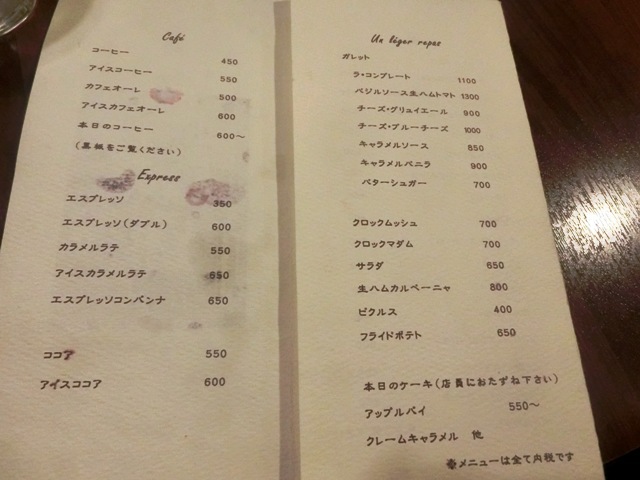 Café
コーヒー 450
アイスコーヒー 550
カフェオーレ 500
アイスカフェオーレ 600
本日のコーヒー 600～
（黒板をご覧ください）
Express
エスプレッソ 350
エスプレッソ（ダブル） 600
カラメルラテ 550
アイスカラメルラテ 650
エスプレッソコンパンナ 650
ココア 550
アイスココア 600
Un léger repas
ガレット
ラ・コンプレート 1100
バジルソース生ハムトマト 1300
チーズ・グリュイエール 900
チーズ・ブルーチーズ 1000
キャラメルソース 850
キャラメルバニラ 900
バターシュガー 700
クロックムッシュ 700
クロックマダム 700
サラダ 650
生ハムカルペーニャ 800
ピクルス 400
フライドポテト 650
本日のケーキ（店員におたずね下さい）
アップルパイ 550～
クレームキャラメル 他
※メニューは全て内税です